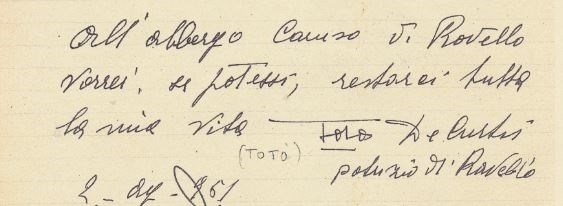 All'albergo Caruso di Ravello
vorrei, se potessi, restarci tutta
la mia vita Totò De Curtis
(TOTÒ)
patrizio di Ravello
2 - - 951